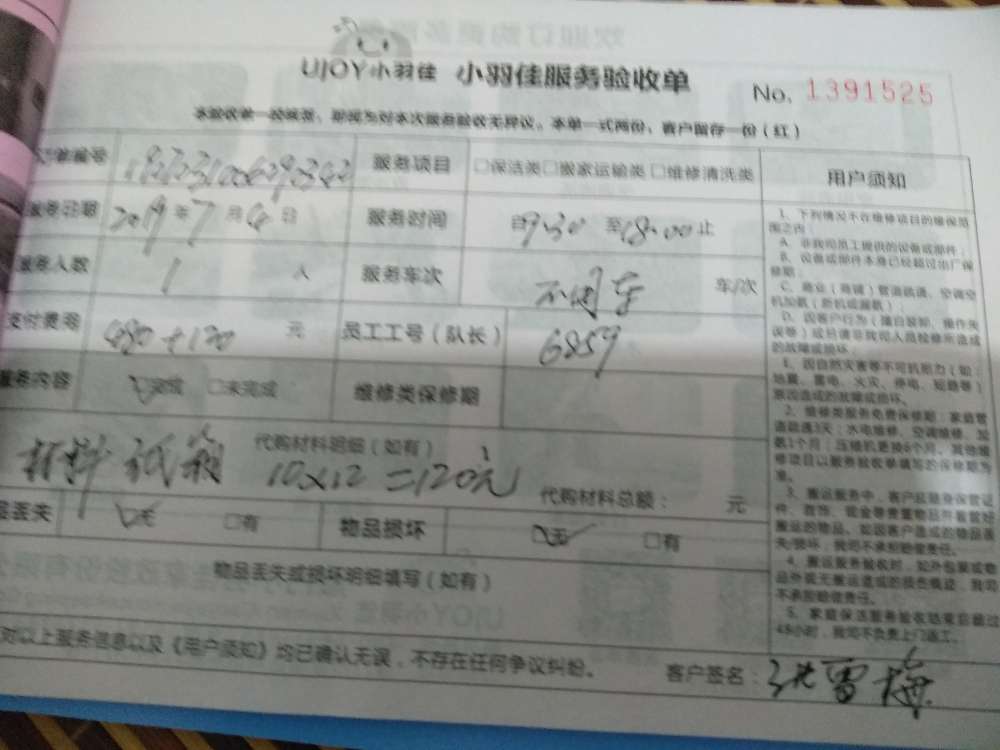 UJOY小羽佳 小羽佳服务验收单 No. 1391525
本验收单一经填写,即视为对本次服务验收无异议。本单一式两份,客户留存一份(红)
单编号 服务项目 □保洁类□搬家运输类□维修清洗类 用户须知
服务日期 2019年7月4日 服务时间 自9:30至18:00止
服务人数 1 人 服务车次 不用车 车/次
支付费用 480+120 元 员工工号(队长) 6859
服务内容 完成 □未完成 维修类保修期
代购材料明细(如有)
材料 纸箱 10×12=120元 代购材料总额: 元
品丢失 无 □有 物品损坏 无 □有
物品丢失或损坏明细填写(如有)
对以上服务信息以及《用户须知》均已确认无误,不存在任何争议纠纷。 客户签名:洪雪梅
1、下列情况不在维修项目的维保范
围之内:
A、非我司员工提供的设备或部件;
B、设备或部件本身已经超过出厂保
修期;
C、商业(商铺)管道疏通、空调空
机加氨(新机或漏氨);
D、因客户行为(擅自装卸、操作失
误等)或另请非我司人员检修所造成
的故障或损坏;
E、因自然灾害等不可抗力(如:
地震、雷电、火灾、停电、短路等)
原因造成的故障或损坏。
2、维修类服务免费保修期:家庭管
道疏通3天;水电维修、空调维修、加
氨1个月;压缩机更换6个月。其他维
修项目以服务验收单填写的保修期为
准。
3、搬运服务中,客户应随身保管证
件、首饰、现金等贵重物品并看管好
搬运的物品。如因客户造成的物品丢
失/损坏,我司不承担赔偿责任。
4、搬运服务验收时,如外包装或物
品外观无搬运造成的损伤痕迹,我司
不承担赔偿责任。
5、家庭保洁服务验收结束后超过
48小时,我司不负责上门返工。